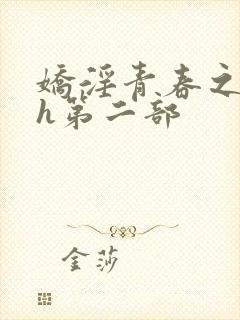 嬌淫青春之
h第二部
金莎